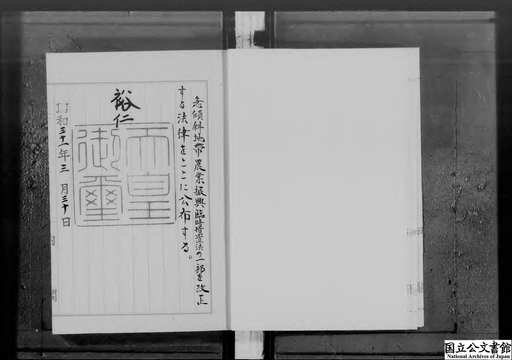 急傾斜地帯農業振興臨時措置法の一部を改正
する法律をここに公布する。
裕仁
天皇
御璽
昭和三十一年三月三十日
国立公文書館
National Archives of Japan